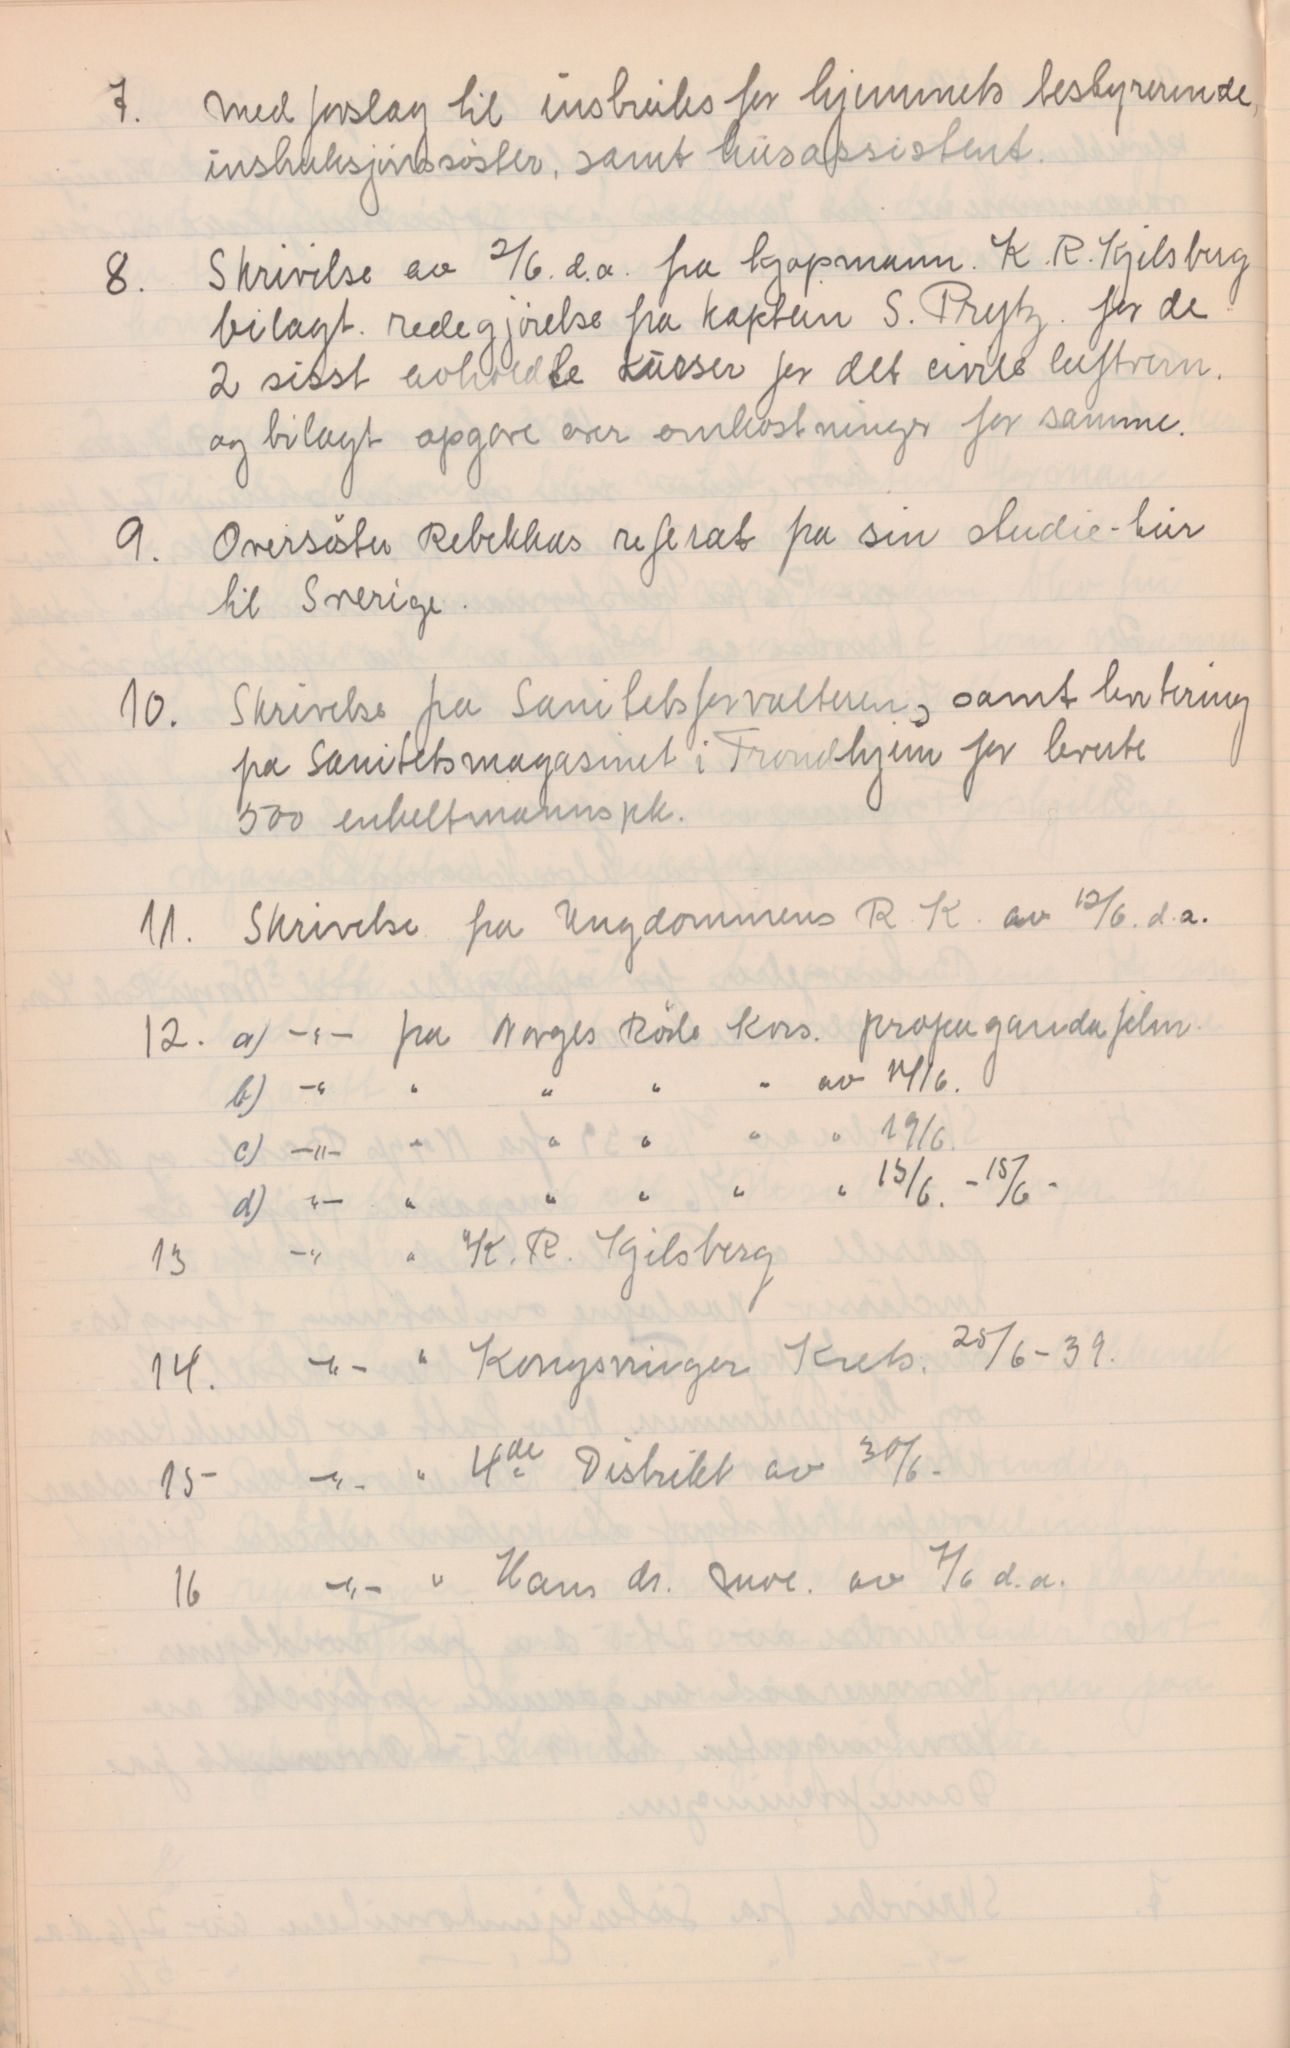 7. med forslag til instruks for hjemmets bestyrerinde,
instruksjonssöster, samt husassistent.
8. Skrivelse av 2/6. d.a. fra kjøpmann. K. R. Kjilsberg
bilagt. redegjörelse fra kaptein S. Prytz. for de
2 sisst avholdte kurser for det civile luftvern.
og bilagt opgave over omkostninger for samme.
9. Oversöster Rebekkas referat fra sin studie-tur
til Sverige.
10. Skrivelse fra Sanitetsforvalteren, samt kvitering
fra Sanitetsmagasinet i Trondhjem for leverte
500 enkeltmannspk.
11. Skrivelse fra Ungdommens R. K. av 12/6. d.a.
12. a) -"- fra Norges Röde Kors. propagandafilm.
b) -" " " " " av 14/6.
c) -"- " " " " " 19/6.
d) "- " " " " " 13/6. - 15/6 -
13 -" " K. R. Kjilsberg
14. -"- " Kongsvinger Krets. 25/6 - 39.
15 -"- " 4de Distrikt av 30/6.
16 -"- " Hans dr. Moe. av 7/6 d.a.